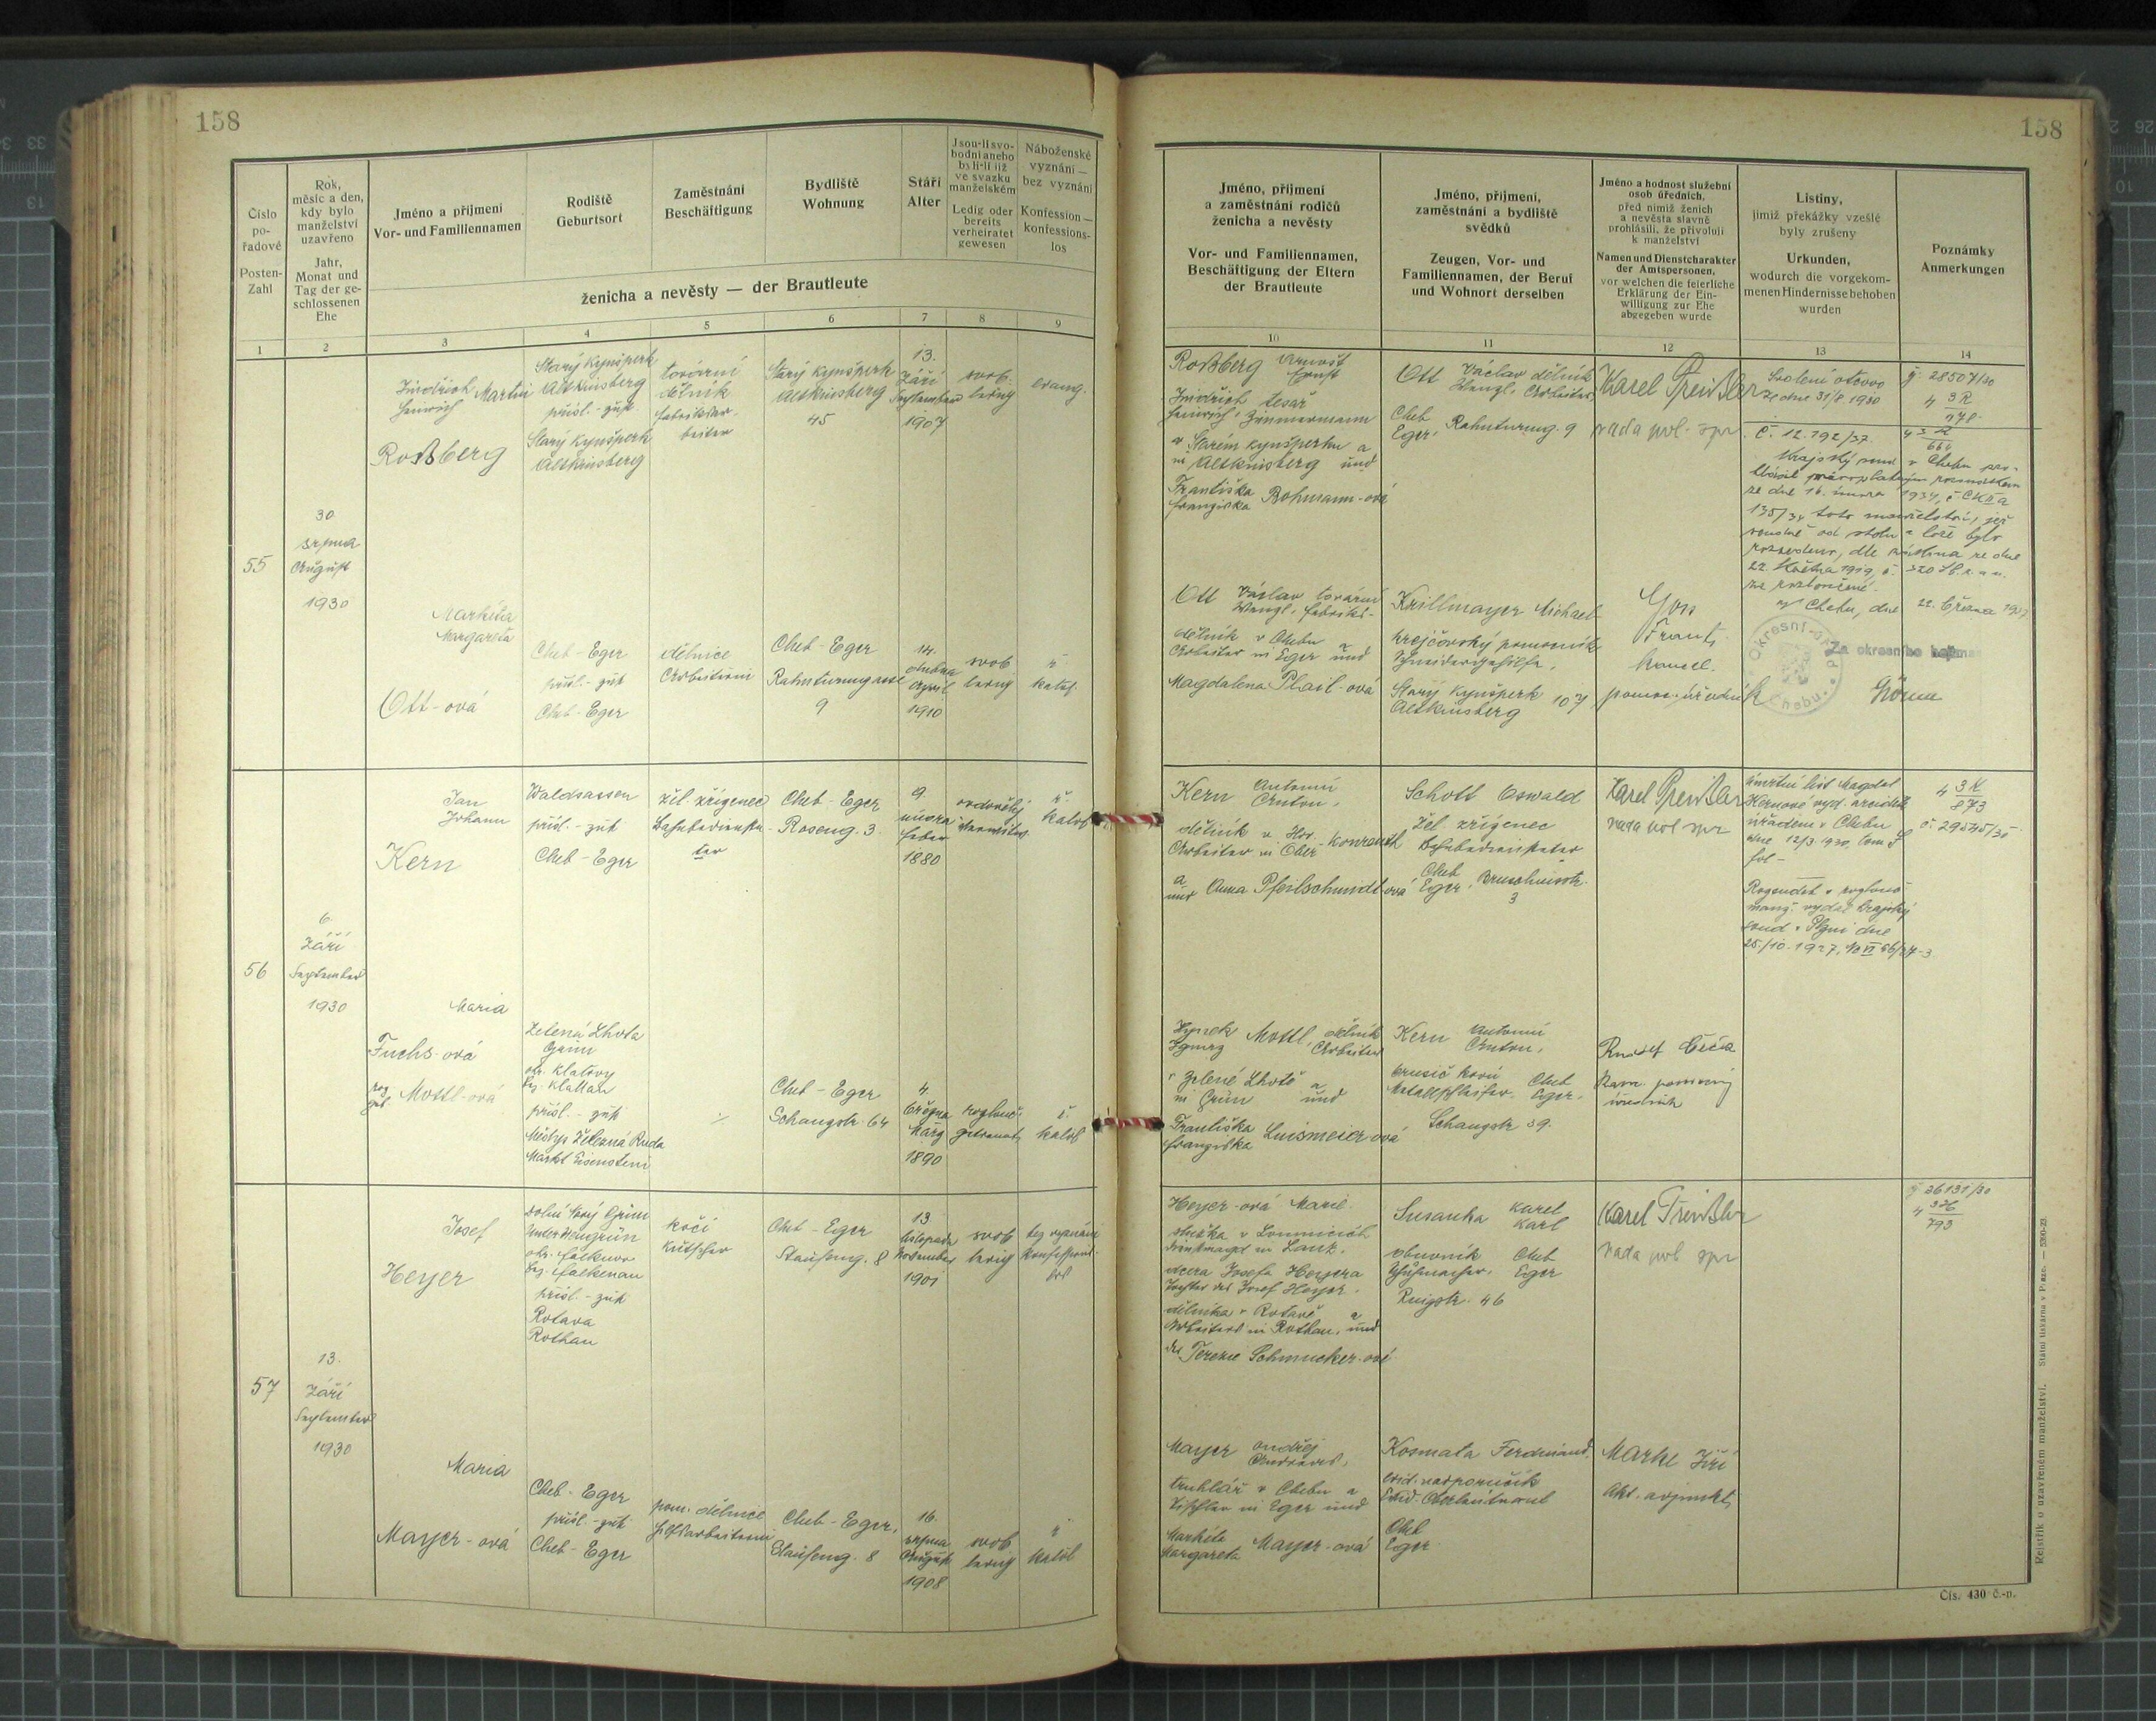 158
Číslo
po-
řadové
Posten-
Zahl
Rok,
měsíc a den,
kdy bylo
manželství
uzavřeno
Jahr,
Monat und
Tag der ge-
schlossenen
Ehe
Jméno a příjmení
Vor- und Familiennamen
Rodiště
Geburtsort
Zaměstnání
Beschäftigung
Bydliště
Wohnung
Stáří
Alter
Jsou-li svo-
bodni anebo
byli-li již
ve svazku
manželském
Ledig oder
bereits
verheiratet
gewesen
Náboženské
vyznání —
bez vyznání
Konfession —
konfessions-
los
ženicha a nevěsty — der Brautleute
1
2
3
4
5
6
7
8
9
55
30
srpna
August
1930
Jindřich
Heinrich Martin
Roßberg
Starý Kynšperk
Altkinsberg
přísl. - zust.
Starý Kynšperk
Altkinsberg
tovární
dělník
Fabriksar-
beiter
Starý Kynšperk
Altkinsberg
45
13.
září
September
1907
svob.
ledig
evang.
Markéta
Margareta
Ott-ová
Cheb - Eger
přísl. - zust
Cheb - Eger
dělnice
Arbeiterin
Cheb - Eger
Rahnturmgasse
9
14.
dubna
April
1910
svob
ledig
ř.
kathol.
56
6.
září
September
1930
Jan
Johann
Kern
Waldsassen
přísl. - zust
Cheb - Eger
žel. zřízenec
Bahnbedienste-
ter
Cheb - Eger
Roseng. 3
9
února
Feber
1880
ovdovělý
verwitwet
ř.
kathol
Maria
Fuchs-ová
roz
geb. Mottl-ová
Zelená Lhota
Grün
okr. Klatovy
Bez. Klattau
přísl. - zust
Městys Železná Ruda
Markt Eisenstein
Cheb - Eger
Schanzstr. 64
4
března
März
1890
rozluč.
getrennt
ř.
kathol
57
13.
září
September
1930
Josef
Heyer
okr. Falknov
Bez. Falkenau
přísl. - zust
Rotava
Rothau
kočí
Kutscher
Cheb - Eger
Staufeng. 8
13
listopadu
November
1901
svob
ledig
bez vyznání
konfessions-
los
Maria
Mayer-ová
Cheb - Eger
přísl. - zust
Cheb - Eger
pom. dělnice
Hilfsarbeiterin
Cheb - Eger,
Staufeng. 8
16.
srpna
August
1908
svob
ledig
ř
kathol
158
Jméno, příjmení
a zaměstnání rodičů
ženicha a nevěsty
Vor- und Familiennamen,
Beschäftigung der Eltern
der Brautleute
Jméno, příjmení,
zaměstnání a bydliště
svědků
Zeugen, Vor- und
Familiennamen, der Beruf
und Wohnort derselben
Jméno a hodnost služební
osob úředních,
před nimiž ženich
a nevěsta slavně
prohlásili, že přivolují
k manželství
Namen und Dienstcharakter
der Amtspersonen,
vor welchen die feierliche
Erklärung der Ein-
willigung zur Ehe
abgegeben wurde
Listiny,
jimiž překážky vzešlé
byly zrušeny
Urkunden,
wodurch die vorgekom-
menen Hindernisse behoben
wurden
Poznámky
Anmerkungen
10
11
12
13
14
Roßberg Arnošt
Ernst
Jindřich tesař
Heinrich, Zimmermann
v Starém Kynšperku a
in Altkinsberg und
Františka
Franziska Bohmann-ová
Ott Václav dělník
Wenzl, Arbeiter,
Cheb
Eger, Rahnturmg. 9
Karel Preißler
rada pol. spr
Svolení otcovo
ze dne 31/8 1930
č. 12.192/37.
Krajský soud v Chebu pro-
ze dne 16. února 1934, č
135/34 toto manželství, jež
od stolu a lože bylo
rozvedeno, dle zákona ze dne
22. května 1919, č. 320 Sb. z. a n.
za rozloučené.
V Chebu, dne 22. března 1937
č 28507/30
4 3R
978
Ott Václav tovární
Wenzl, Fabriks-
dělník v Chebu a
Arbeiter in Eger und
Magdalena Plail-ová
Krillmayer Michael
krejčovský pomocník
Schneidergehilfe,
Starý Kynšperk
Altkinsberg 107
Frant.
kancel.
pomoc. úředník
Okresní úřad
v Chebu
Za okresního hejtmana
Kern Antonín
Anton,
dělník v Hor.
Arbeiter in Ober- Konreuth
a
und Anna Pfeilschmidt-ová
Schott Oswald
žel. zřízenec
Bahnbediensteter
Cheb
Eger,
3
Karel Preißler
rada pol spr
úmrtní list Magdal
Kernové vyd. arciděk
úřadem v Chebu
dne 12/3 1930, tom
fol -
Rozsudek o rozlouč
manž. vydal krajský
soud v Plzni dne
25/10. 1927,
4 3R
873
č. 29545/30
Hynek
Ignaz Mottl, dělník
Arbeiter
v Zelené Lhotě a
in Grün und
Františka
Franziska Luismeier-ová
Kern Antonín
Anton,
brusič kovů Cheb
Metallschleifer, Eger,
Schanzstr 39.
Rudolf
Kanc. pomocný
úředník
Heyer-ová Marie
služka v Lomnicích
Dienstmagd in Lanz,
dcera Josefa Heyera
Tochter des Josef Heyer,
dělníka v Rotavě a
Arbeiters in Rothau, und
der Terezie Schmucker-ové
Susanka Karel
Karl
obuvník Cheb
Schuhmacher, Eger
Ringstr. 46
Karel Preißler
rada pol spr
č 26131/30
4 3R
793
Mayer Ondřej
Andreas,
truhlář v Chebu a
Tischler in Eger und
Markéta
Margareta Mayer-ová
Kosmata Ferdinand,
evid. nadporučík
Evid. Oberleutnant
Cheb
Eger
Markl Jiří
Akt. adjunkt,
Rejstřík o uzavřeném manželství. Státní tiskárna v Praze. — 5380-23.
Čís. 430 č.-n.